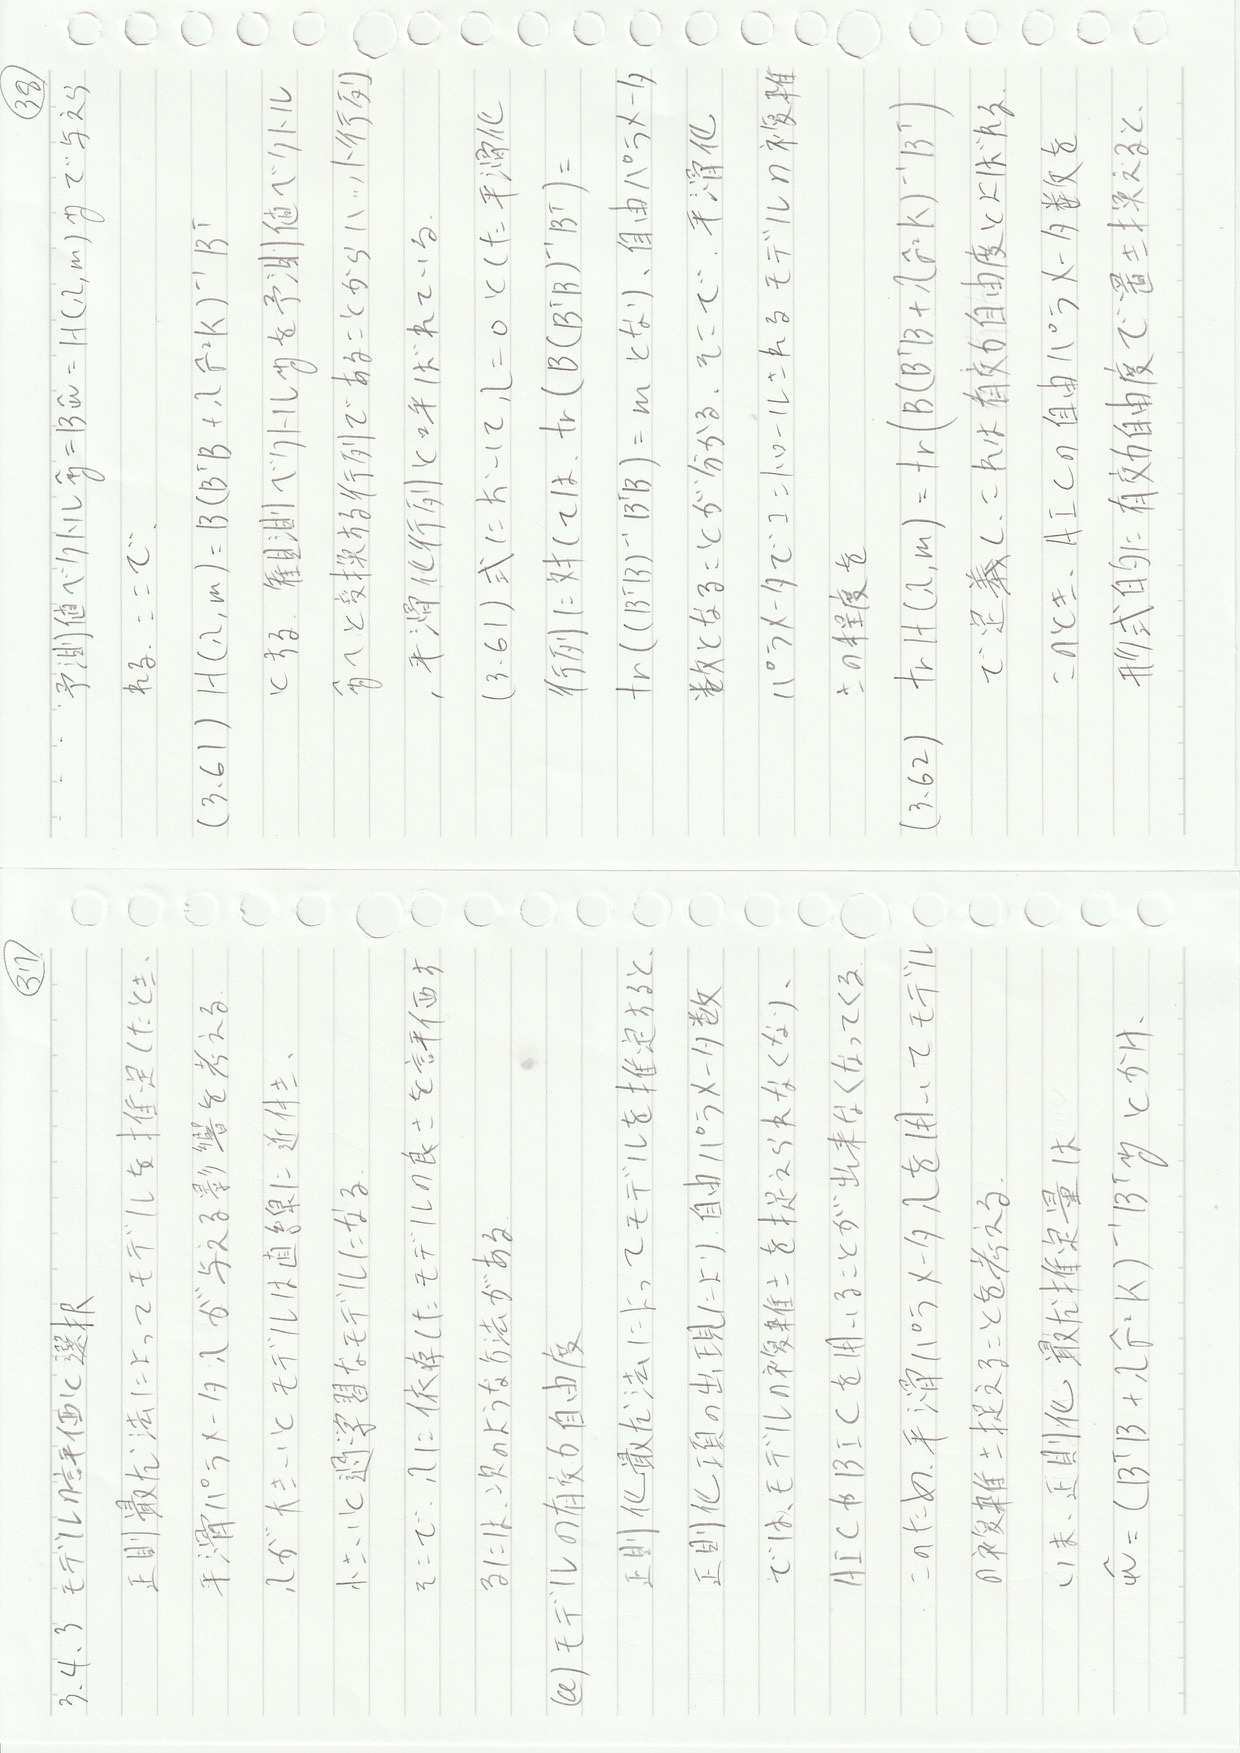 ㊲
3.4.3 モデル評価と選択
正則最尤法によってモデルを推定したとき、
平滑パラメータλが与える影響を考える.
λが大きいとモデルは直線に近付き、
小さいと過学習なモデルになる.
そこで、λに依存したモデルの良さを評価す
るには、次のような方法がある.
(a) モデルの有効自由度
正則化最尤法によってモデルを推定すると、
正則化項の出現により、自由パラメータ数
では、モデルの複雑さを捉えられなくなり、
AICやBICを用いることが出来なくなってくる
このため、平滑パラメータλを用いてモデル
の複雑さ捉えることを考える.
いま、正則化最尤推定量は
ŵ = (BᵀB + λσ̂²K)⁻¹Bᵀy とかけ、
㊳
予測値ベクトルŷ = Bŵ = H(λ,m)yで与えら
れる. ここで
(3.61) H(λ,m) = B(BᵀB + λσ̂²K)⁻¹Bᵀ
とする. 観測ベクトルyを予測値ベクトル
ŷへと変換する行列であることからハット行列
,平滑化行列と呼ばれている.
(3.61)式において,λ=0とした平滑化
行列に対しては、tr(B(BᵀB)⁻¹Bᵀ)=
tr((BᵀB)⁻¹BᵀB)=mとなり、自由パラメータ
数となることが分かる. そこで、平滑化
パラメータでコントロールされるモデルの複雑
さの程度を
(3.62) trH(λ,m) = tr(B(BᵀB + λσ̂²K)⁻¹Bᵀ)
で定義し、これは有効自由度とよばれる.
このとき、AICの自由パラメータ数を
形式的に有効自由度で置き換えると、